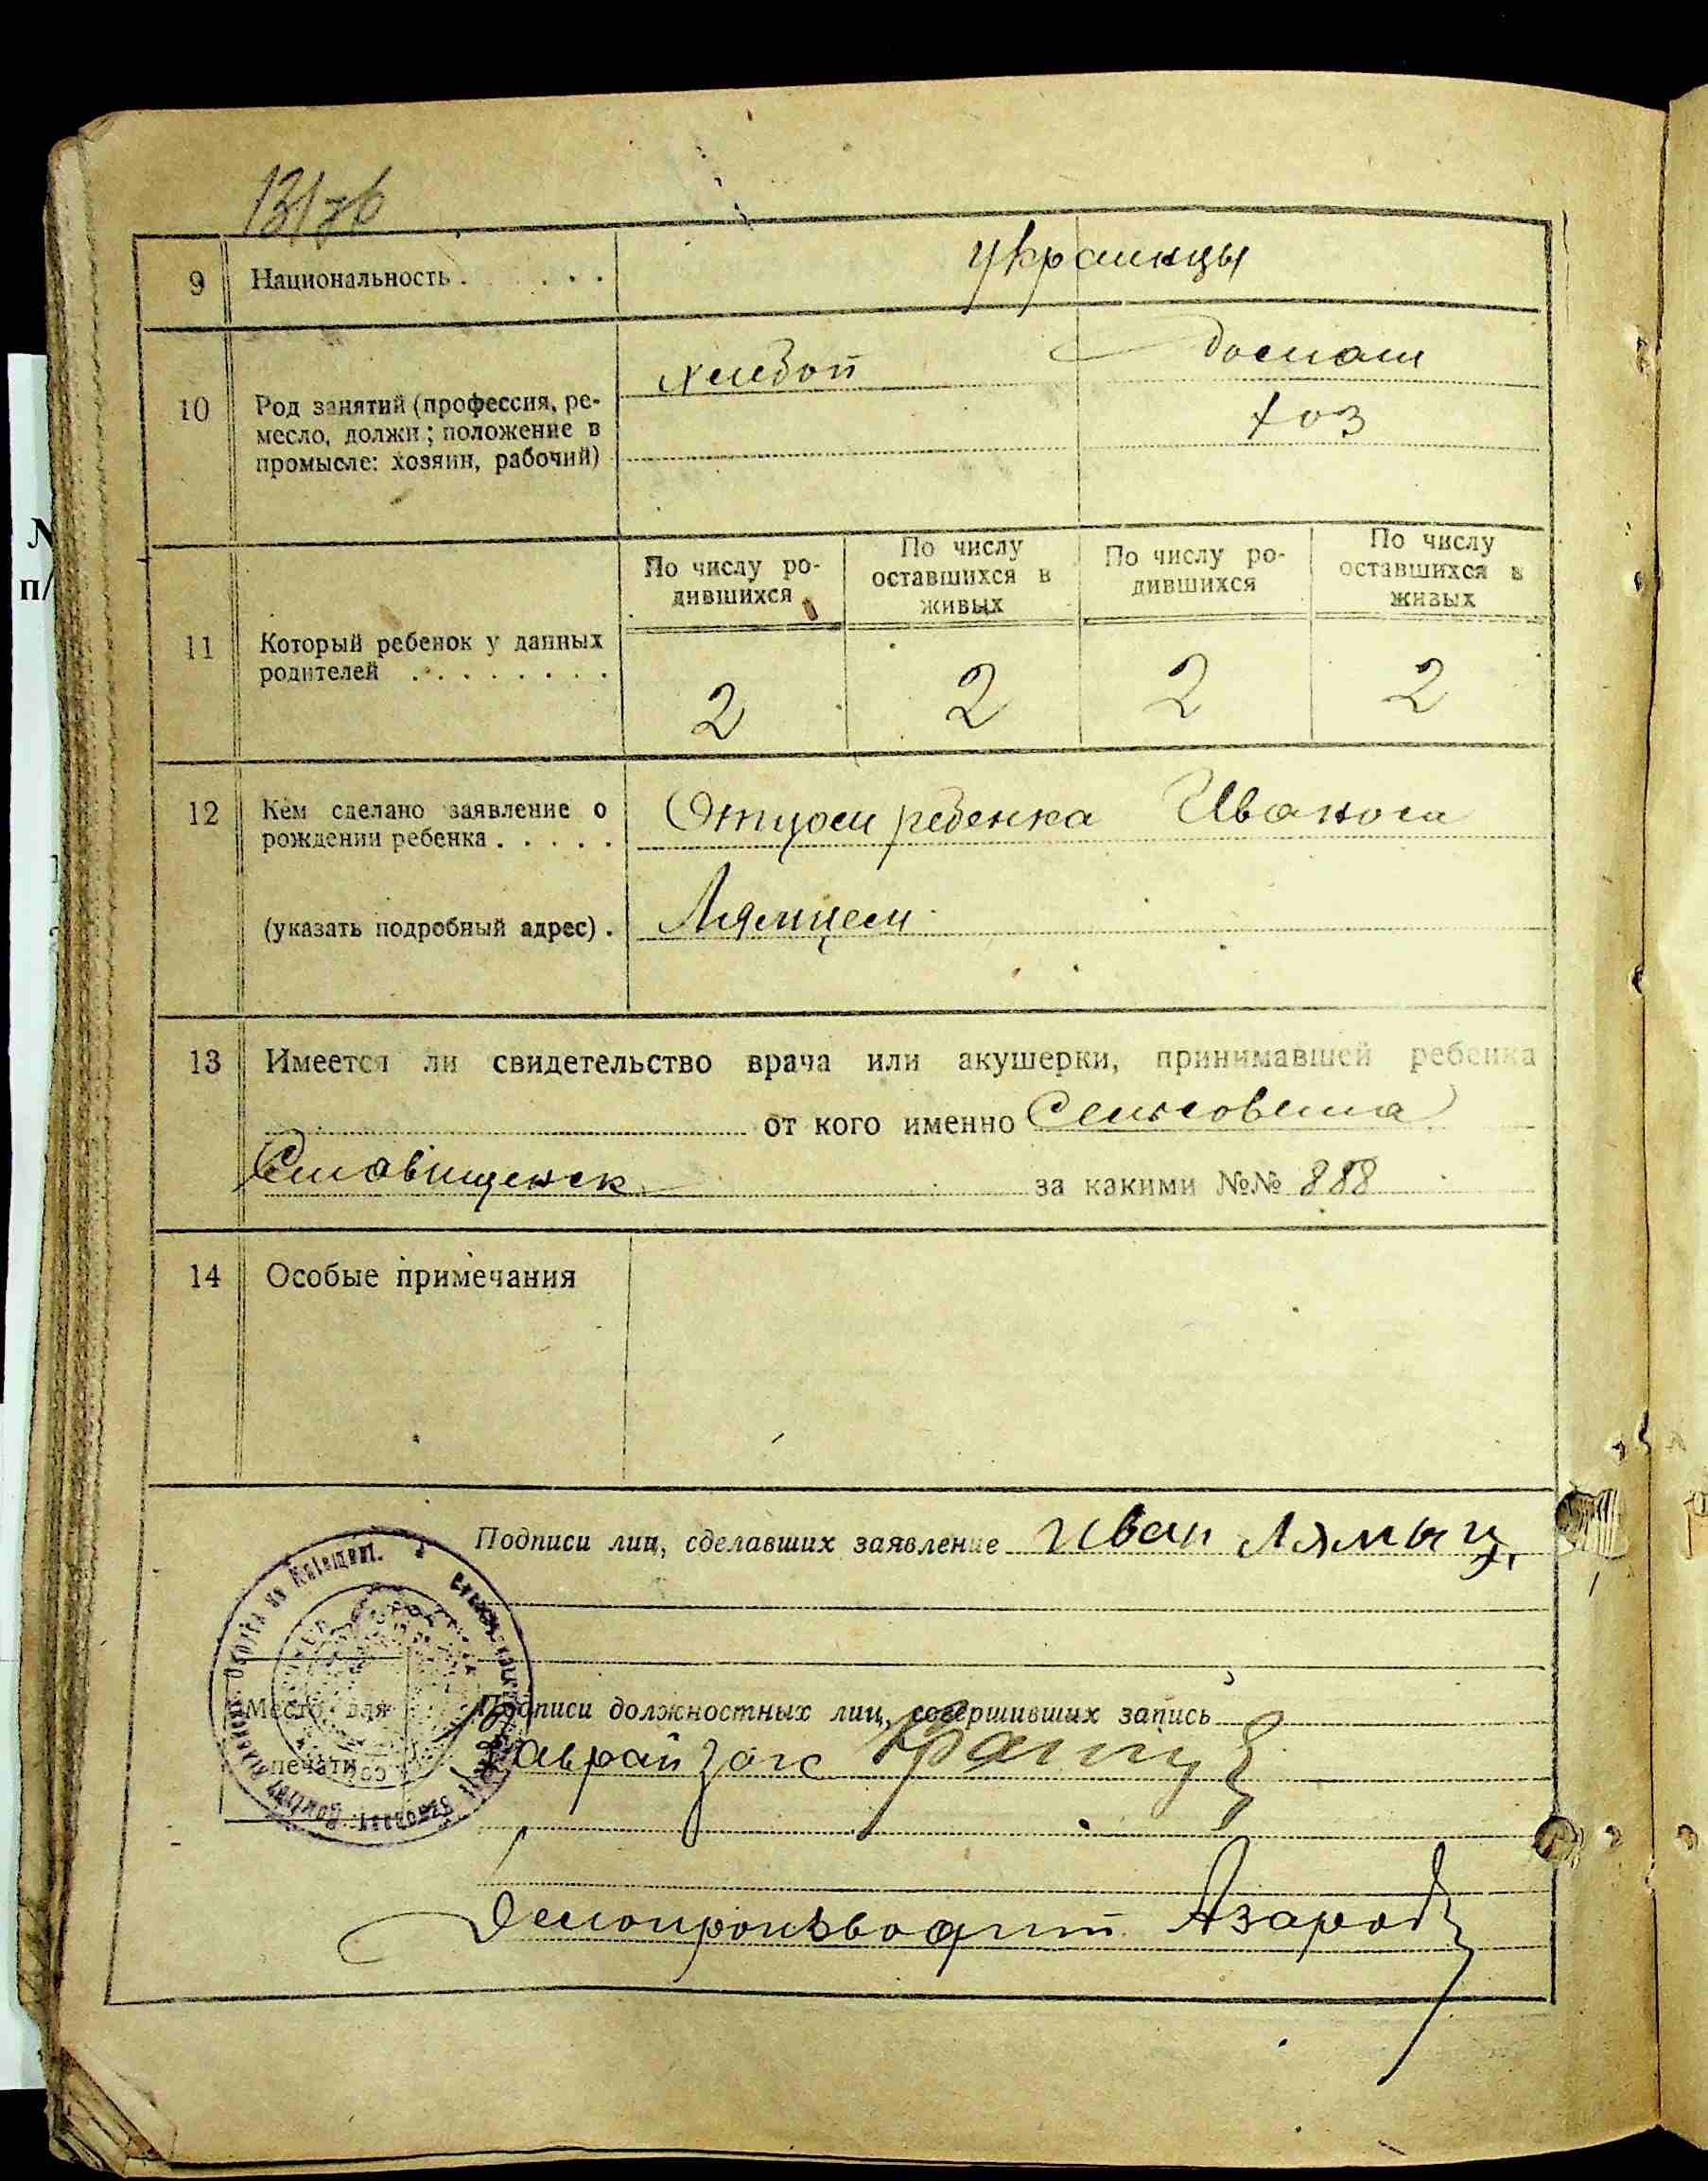 131 зв
9 Национальность . . . . . . украинцы
10 Род занятий (профессия, ре-
месло, должн; положение в
промысле: хозяин, рабочий)
хлебоп
домаш
хоз
11 Который ребенок у данных
родителей . . . . . . . .
По числу ро-
дившихся
По числу
оставшихся в
живых
По числу ро-
дившихся
По числу
оставшихся в
живых
2 2 2 2
12 Кем сделано заявление о
рождении ребенка . . . . .
Отцом ребенка Иваном
(указать подробный адрес) . Лямцем
13 Имеется ли свидетельство врача или акушерки, принимавшей ребенка
от кого именно Сельсовета
Ставищенск за какими №№ 888
14 Особые примечания
Подписи лиц, сделавших заявление Иван Лямыц
Место для
печати
Подписи должностных лиц, совершивших запись
Завраизагс
Делопроизводит Азаров
N
п/